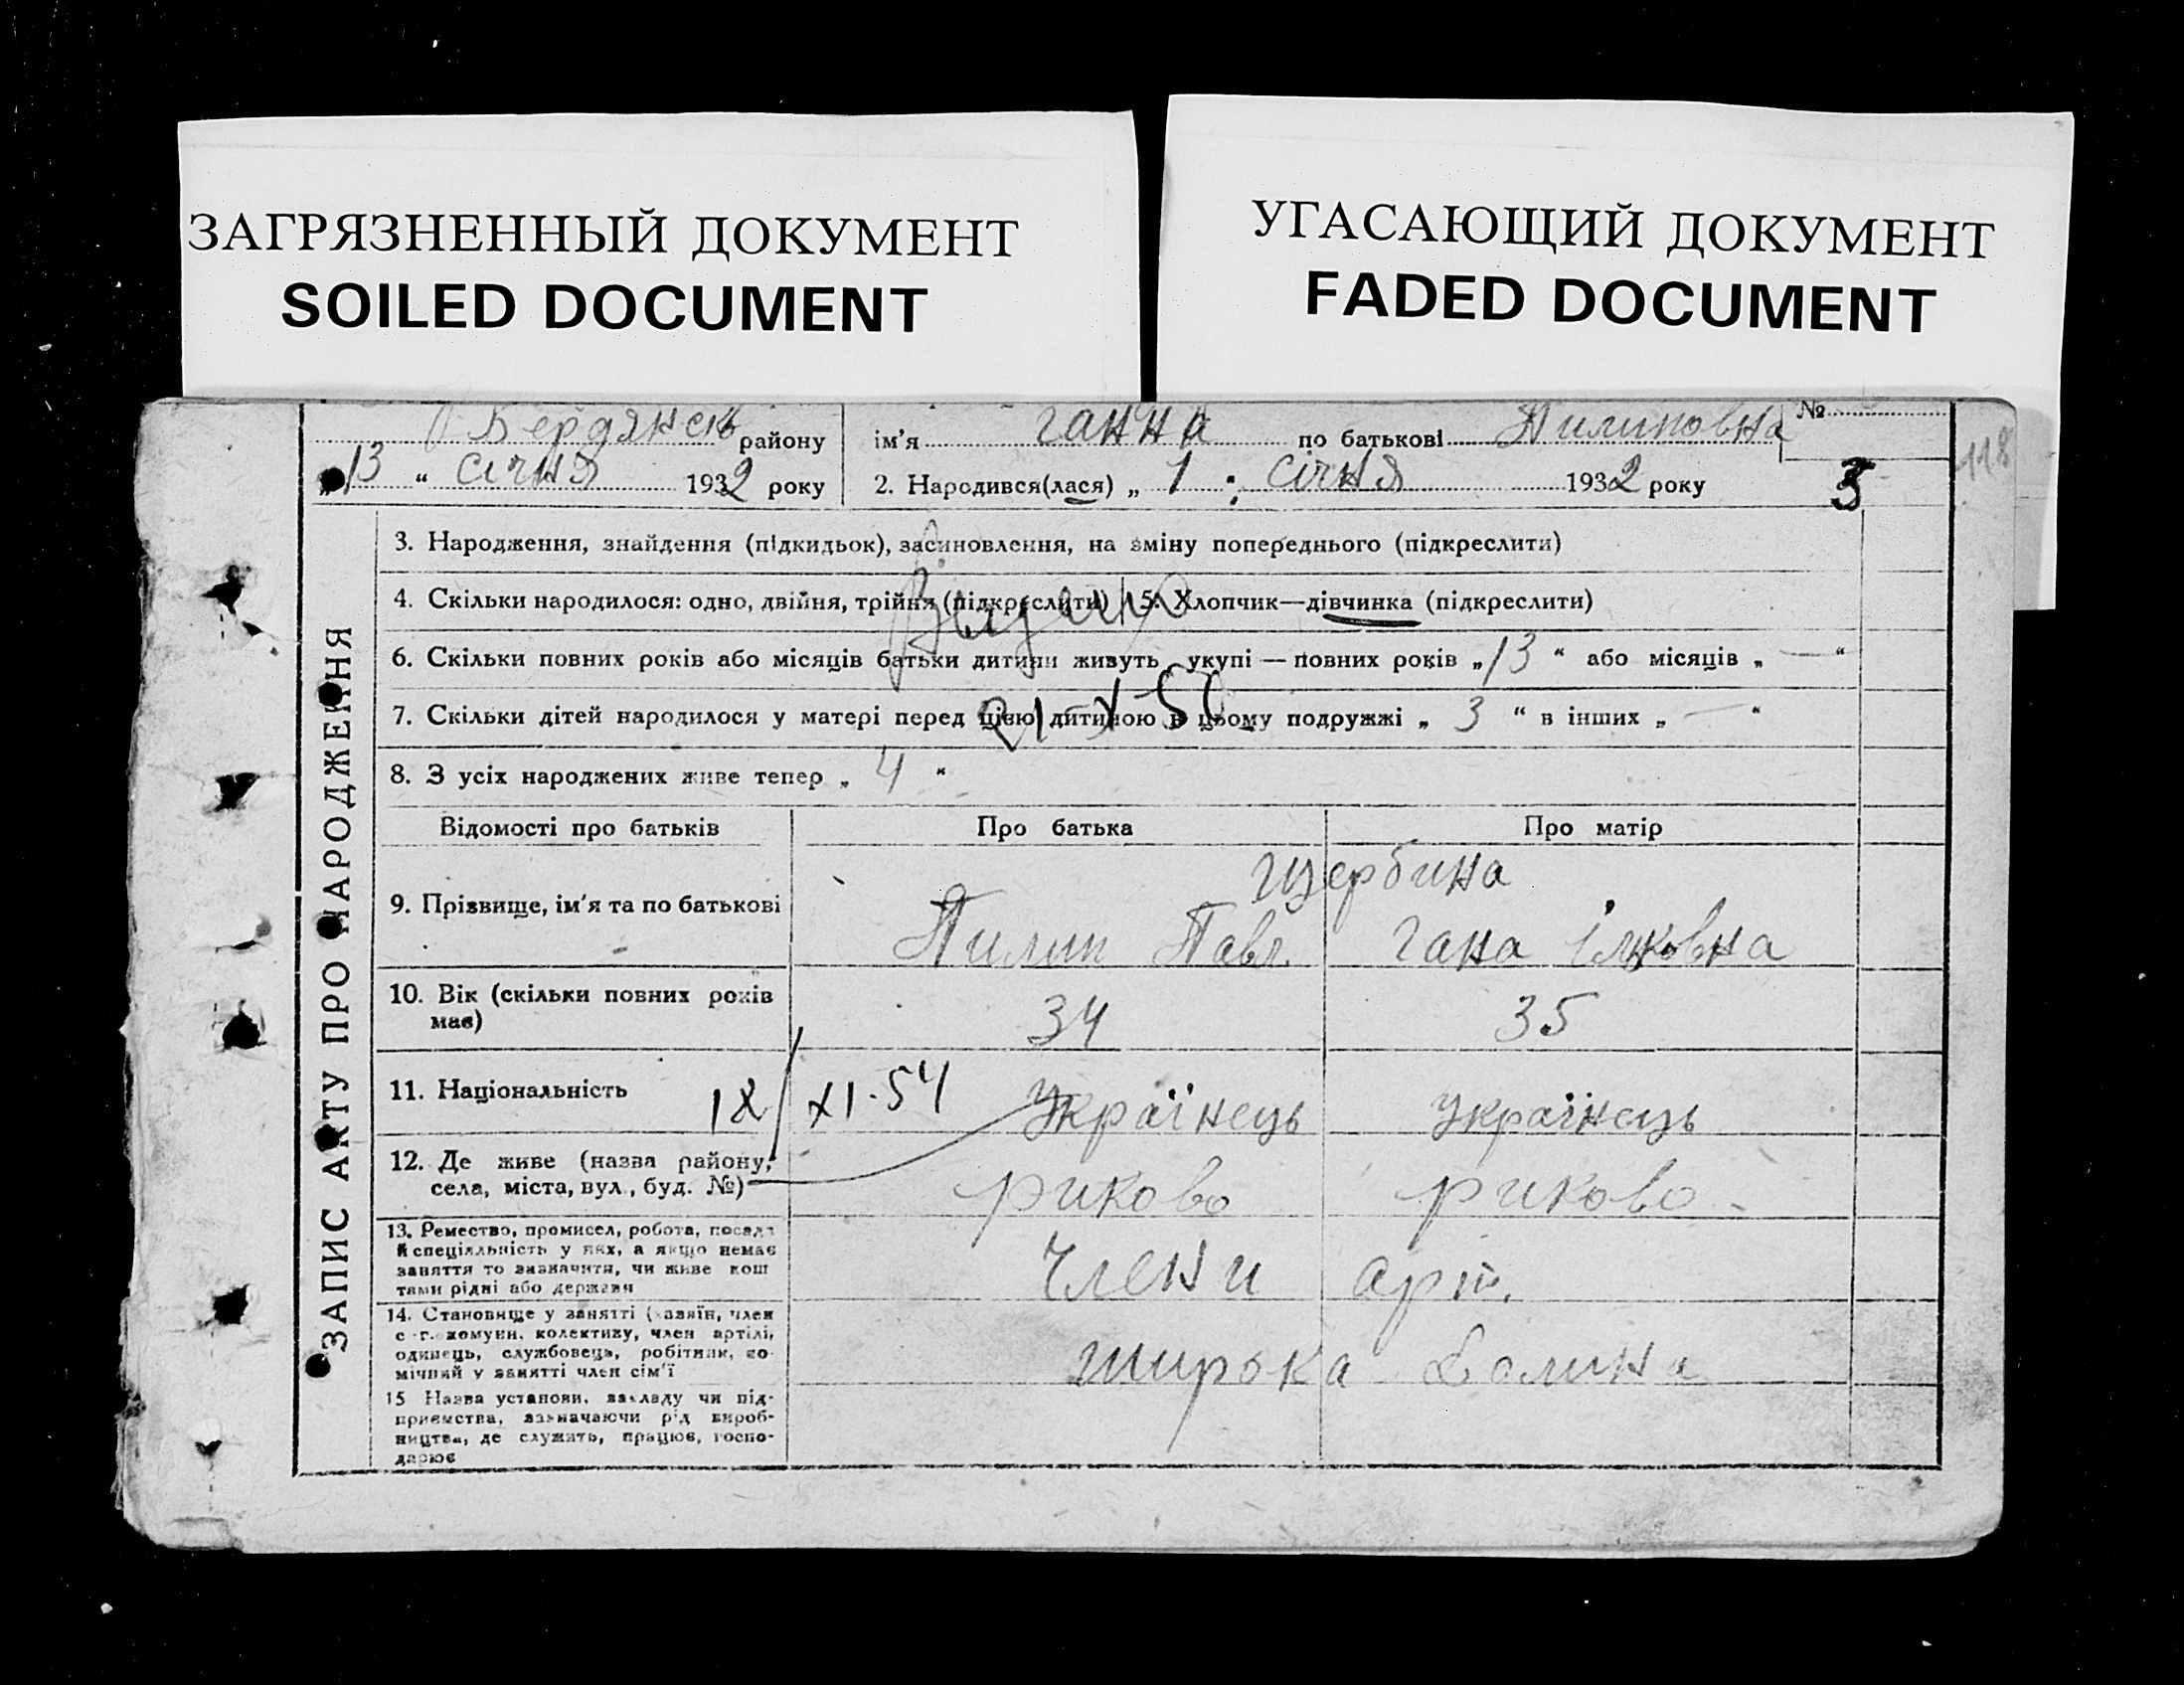 ЗАГРЯЗНЕННЫЙ ДОКУМЕНТ
SOILED DOCUMENT
УГАСАЮЩИЙ ДОКУМЕНТ
FADED DOCUMENT
Бердянськ району
"13" січня 1932 року
ім'я Ганна по батькові Пилиповна
2. Народився(лася) „1" січня 1932 року
№
3
118
ЗАПИС АКТУ ПРО НАРОДЖЕННЯ
3. Народження, знайдення (підкидьок), засиновлення, на зміну попереднього (підкреслити)
4. Скільки народилося: одно, двійня, трійня (підкреслити) 5. Хлопчик—дівчинка (підкреслити)
6. Скільки повних років або місяців батьки дитини живуть укупі — повних років „13" або місяців „—"
21-X-50
7. Скільки дітей народилося у матері перед цією дитиною в цьому подружжі „3" в інших „—"
8. З усіх народжених живе тепер „4"
Відомості про батьків Про батька Про матір
9. Прізвище, ім'я та по батькові
Щербина
Пилип Павл. Гана
10. Вік (скільки повних років має)
34 35
11. Національність
XI-54
Українець українець
12. Де живе (назва району, села, міста, вул., буд. №)
Риково Риково
13. Ремество, промисел, робота, посада
й спеціяльність у них, а якщо немає
заняття то визначити, чи живе кош
тами рідні або держави
Члени арт.
14. Становище у занятті (хазяїн, член
с.-г. комуни, колективу, член артілі,
одинець, службовець, робітник, по-
мічний у занятті член сім'ї
Широка Долина
15 Назва установи, закладу чи під-
приємства, зазначаючи рід вироб-
ництва, де служить, працює, госпо-
дарює